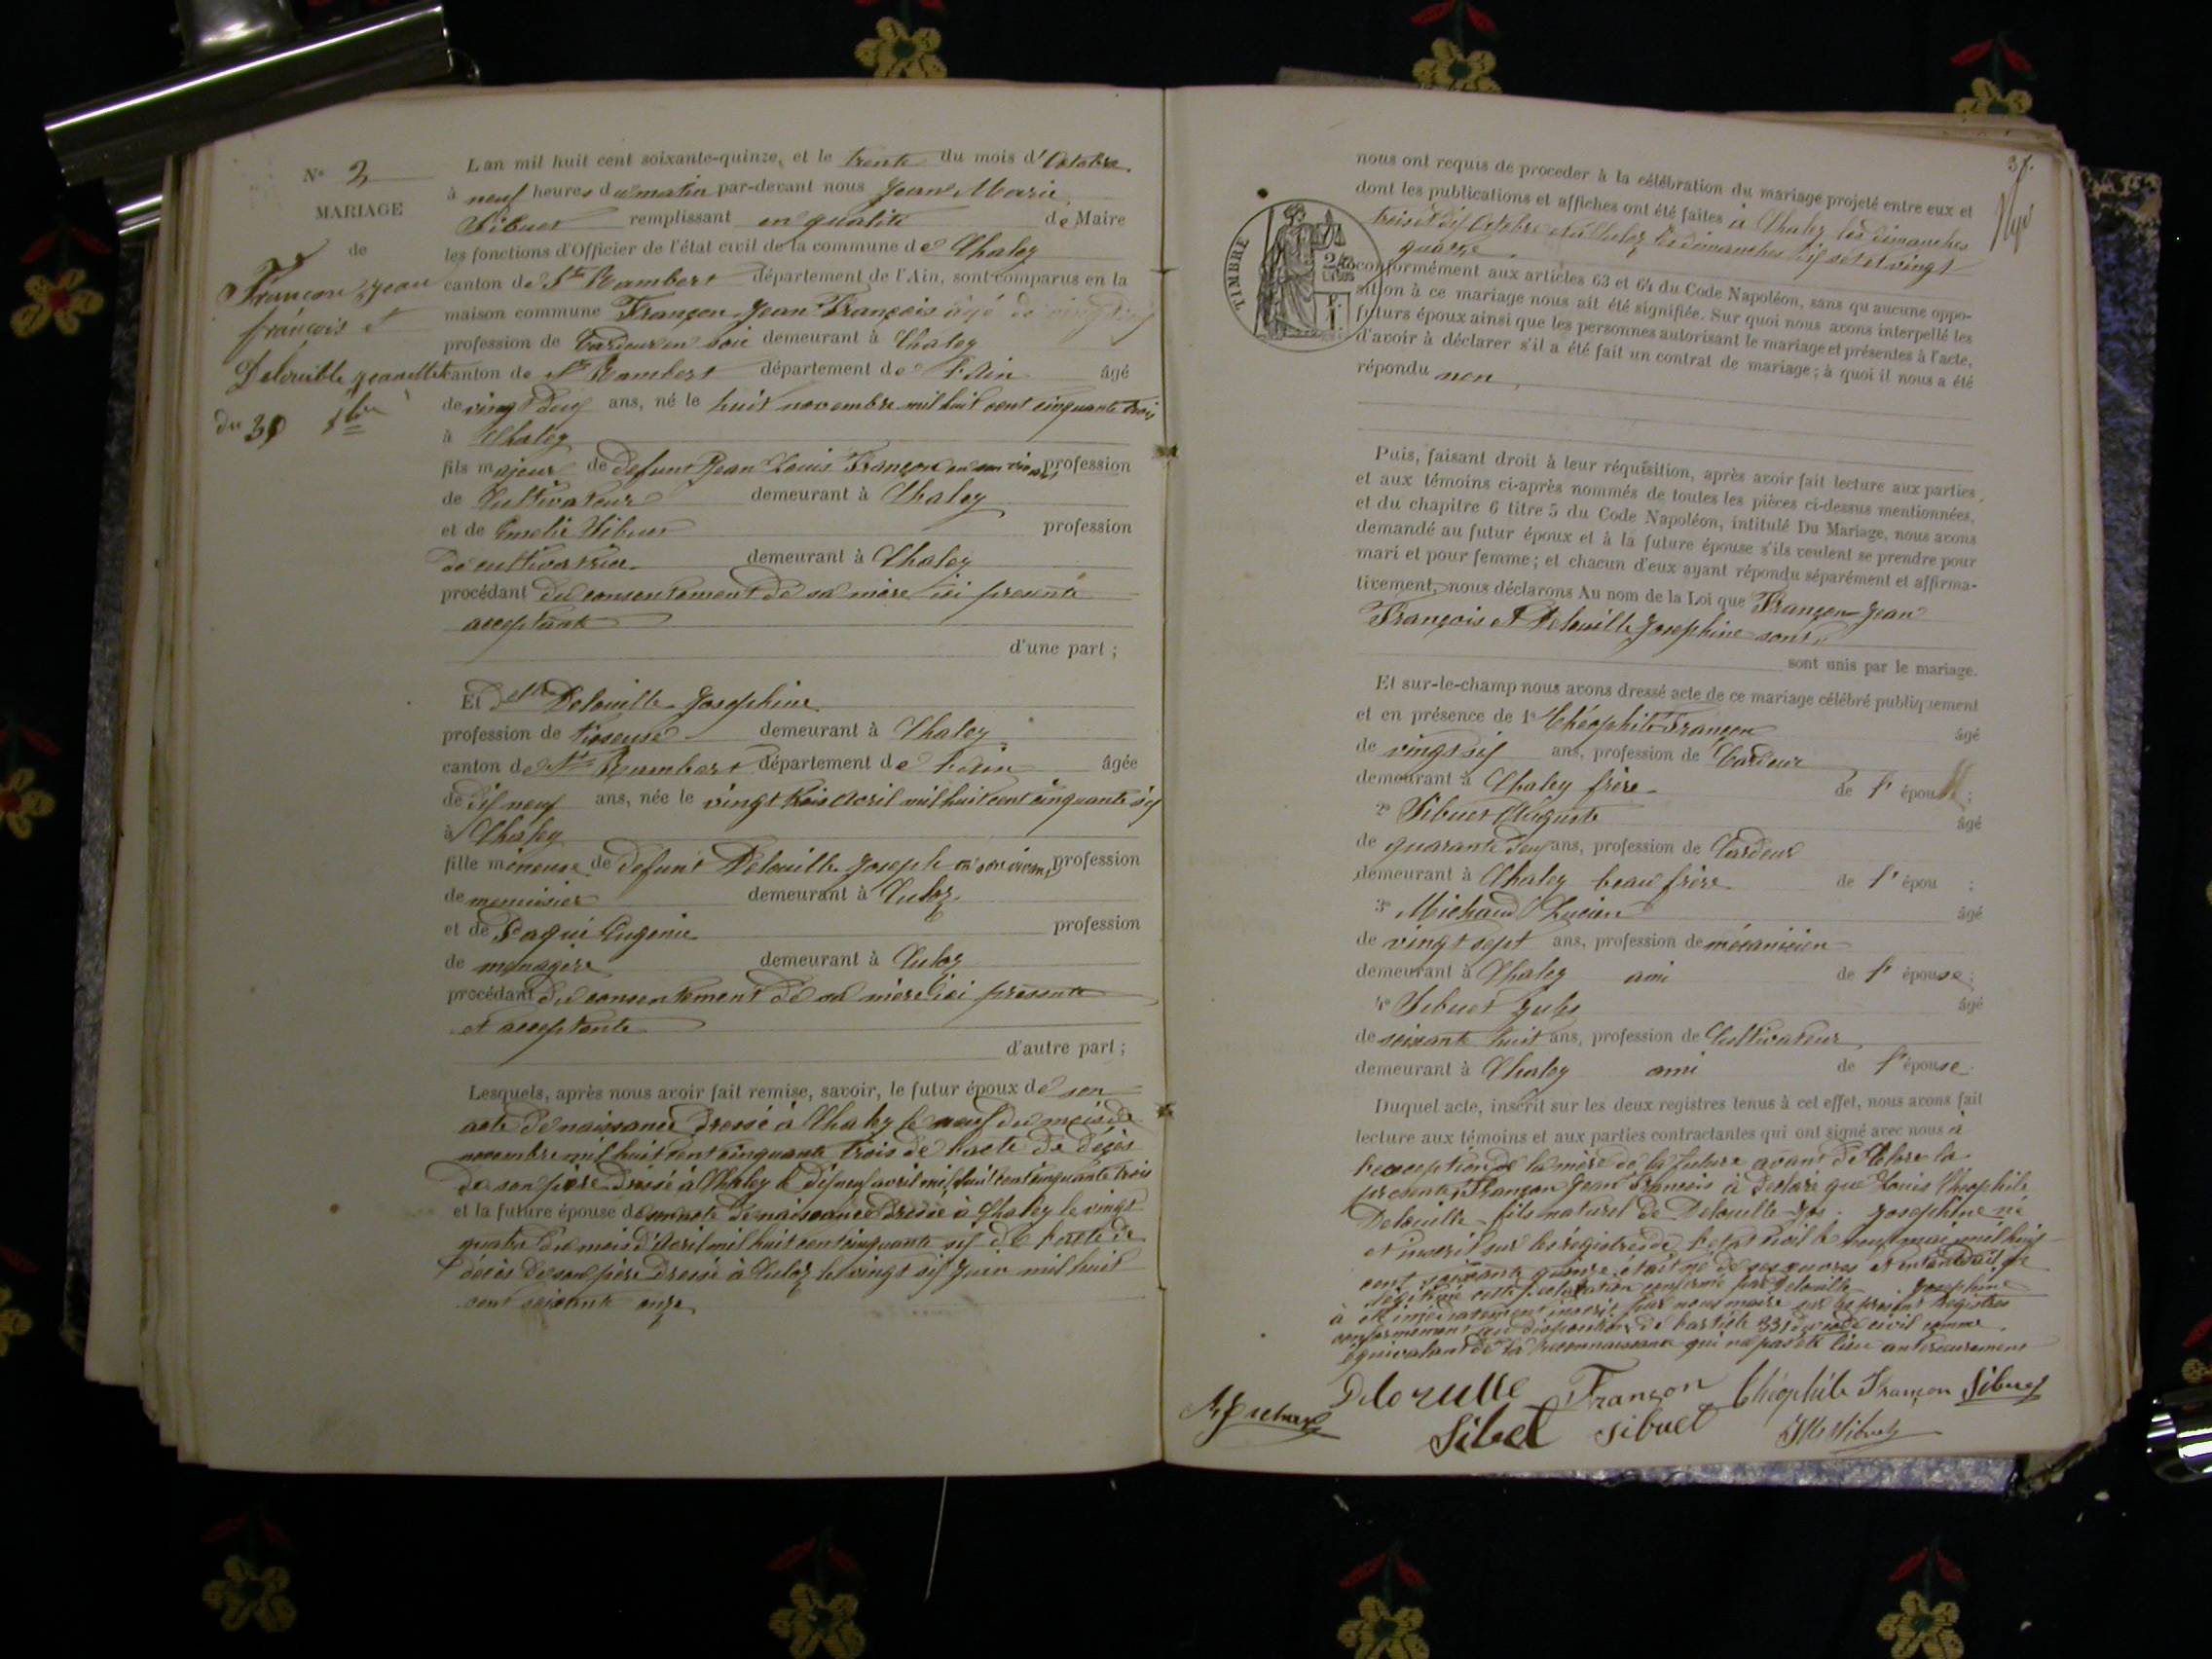 N° 2
MARIAGE
de
Françon Jean
françois et
Delouille Jeanette
du 30 8bre
L'an mil huit cent soixante-quinze, et le trente du mois d'Octobre
à neuf heures du matin par-devant nous Jean Marie
Sibuet remplissant en qualité de Maire
les fonctions d'Officier de l'état civil de la commune de Chaley
canton de St Rambert département de l'Ain, sont comparus en la
maison commune Françon Jean François âgé de
profession de Cardeur en soie demeurant à Chaley
canton de St Rambert département de l'Ain âgé
de vingt deux ans, né le huit novembre mil huit cent cinquante trois
à Chaley
fils majeur de defunt Jean Louis Françon en son vivant profession
de Cultivateur demeurant à Chaley
et de Emelie Sibuet profession
de cultivatrice demeurant à Chaley
procédant du consentement de sa mère ici presente
acceptante
d'une part ;
Et Delle Delouille Josephine
profession de tisseuse demeurant à Chaley
canton de St Rambert département de l'Ain âgée
de dix neuf ans, née le vingt trois Avril mil huit cent cinquante six
à Chaley
fille mineure de defunt Delouille Joseph en son vivant profession
de menuisier demeurant à Culoz
et de Paqui Eugenie profession
de menagère demeurant à Culoz
procédant du consentement de sa mère ici presente
et acceptante
d'autre part ;
Lesquels, après nous avoir fait remise, savoir, le futur époux de son
acte de naissance dressé à Chaley le neuf du mois de
novembre mil huit cent cinquante trois de l'acte de décès
de son père dressé à Chaley le dix neuf avril mil huit cent cinquante trois
et la future épouse de son acte de naissance dressé à Chaley le vingt
quatre du mois d'Avril mil huit cent cinquante six de l'acte de
décès de son père dressé à Culoz le vingt six Juin mil huit
cent soixante onze
37.
nous ont requis de procéder à la célébration du mariage projeté entre eux et
dont les publications et affiches ont été faites à Chaley les dimanches
trois et dix Octobre et à Culoz les dimanches dix sept et vingt
quatre
TIMBRE
conformément aux articles 63 et 64 du Code Napoléon, sans qu'aucune oppo-
sition à ce mariage nous ait été signifiée. Sur quoi nous avons interpellé les
futurs époux ainsi que les personnes autorisant le mariage et présentes à l'acte,
d'avoir à déclarer s'il a été fait un contrat de mariage ; à quoi il nous a été
répondu non
Puis, faisant droit à leur réquisition, après avoir fait lecture aux parties
et aux témoins ci-après nommés de toutes les pièces ci-dessus mentionnées,
et du chapitre 6 titre 5 du Code Napoléon, intitulé Du Mariage, nous avons
demandé au futur époux et à la future épouse s'ils veulent se prendre pour
mari et pour femme ; et chacun d'eux ayant répondu séparément et affirma-
tivement, nous déclarons Au nom de la Loi que Françon Jean
François et Delouille Josephine sont
sont unis par le mariage.
Et sur-le-champ nous avons dressé acte de ce mariage célébré publiquement
et en présence de 1° Théophile Françon âgé
de vingt six ans, profession de Cardeur
demeurant à Chaley frère de l'épou ;
2° Sibuet Auguste âgé
de quarante deux ans, profession de Cardeur
demeurant à Chaley beau frère de l'épou ;
3° Michaud Lucien âgé
de vingt sept ans, profession de mécanicien
demeurant à Chaley ami de l'épouse ;
4° Sibuet Jules âgé
de soixante huit ans, profession de Cultivateur
demeurant à Chaley ami de l'épouse.
Duquel acte, inscrit sur les deux registres tenus à cet effet, nous avons fait
lecture aux témoins et aux parties contractantes qui ont signé avec nous à
l'exception de la mère de la future avant de Clore la
presente Françon Jean François à declaré que Louis Théophile
Delouille fils naturel de Delouille Josephine né
et inscrit sur les régistres de l'etat civil le neuf mai mil huit
cent soixante quinze était né de ses œuvres et entendait le
légitimé cette declaration confirmé par Delouille Josephine
à été immédiatement inscrie par nous maire sur le présent Registres
conformement au disposition de l'article 331 du code civil comme
équivalant de la reconnaissance qui n'a pas été lieu anterieurement
Delouille Françon Théophile Françon Sibuet
Sibuet Sibuet